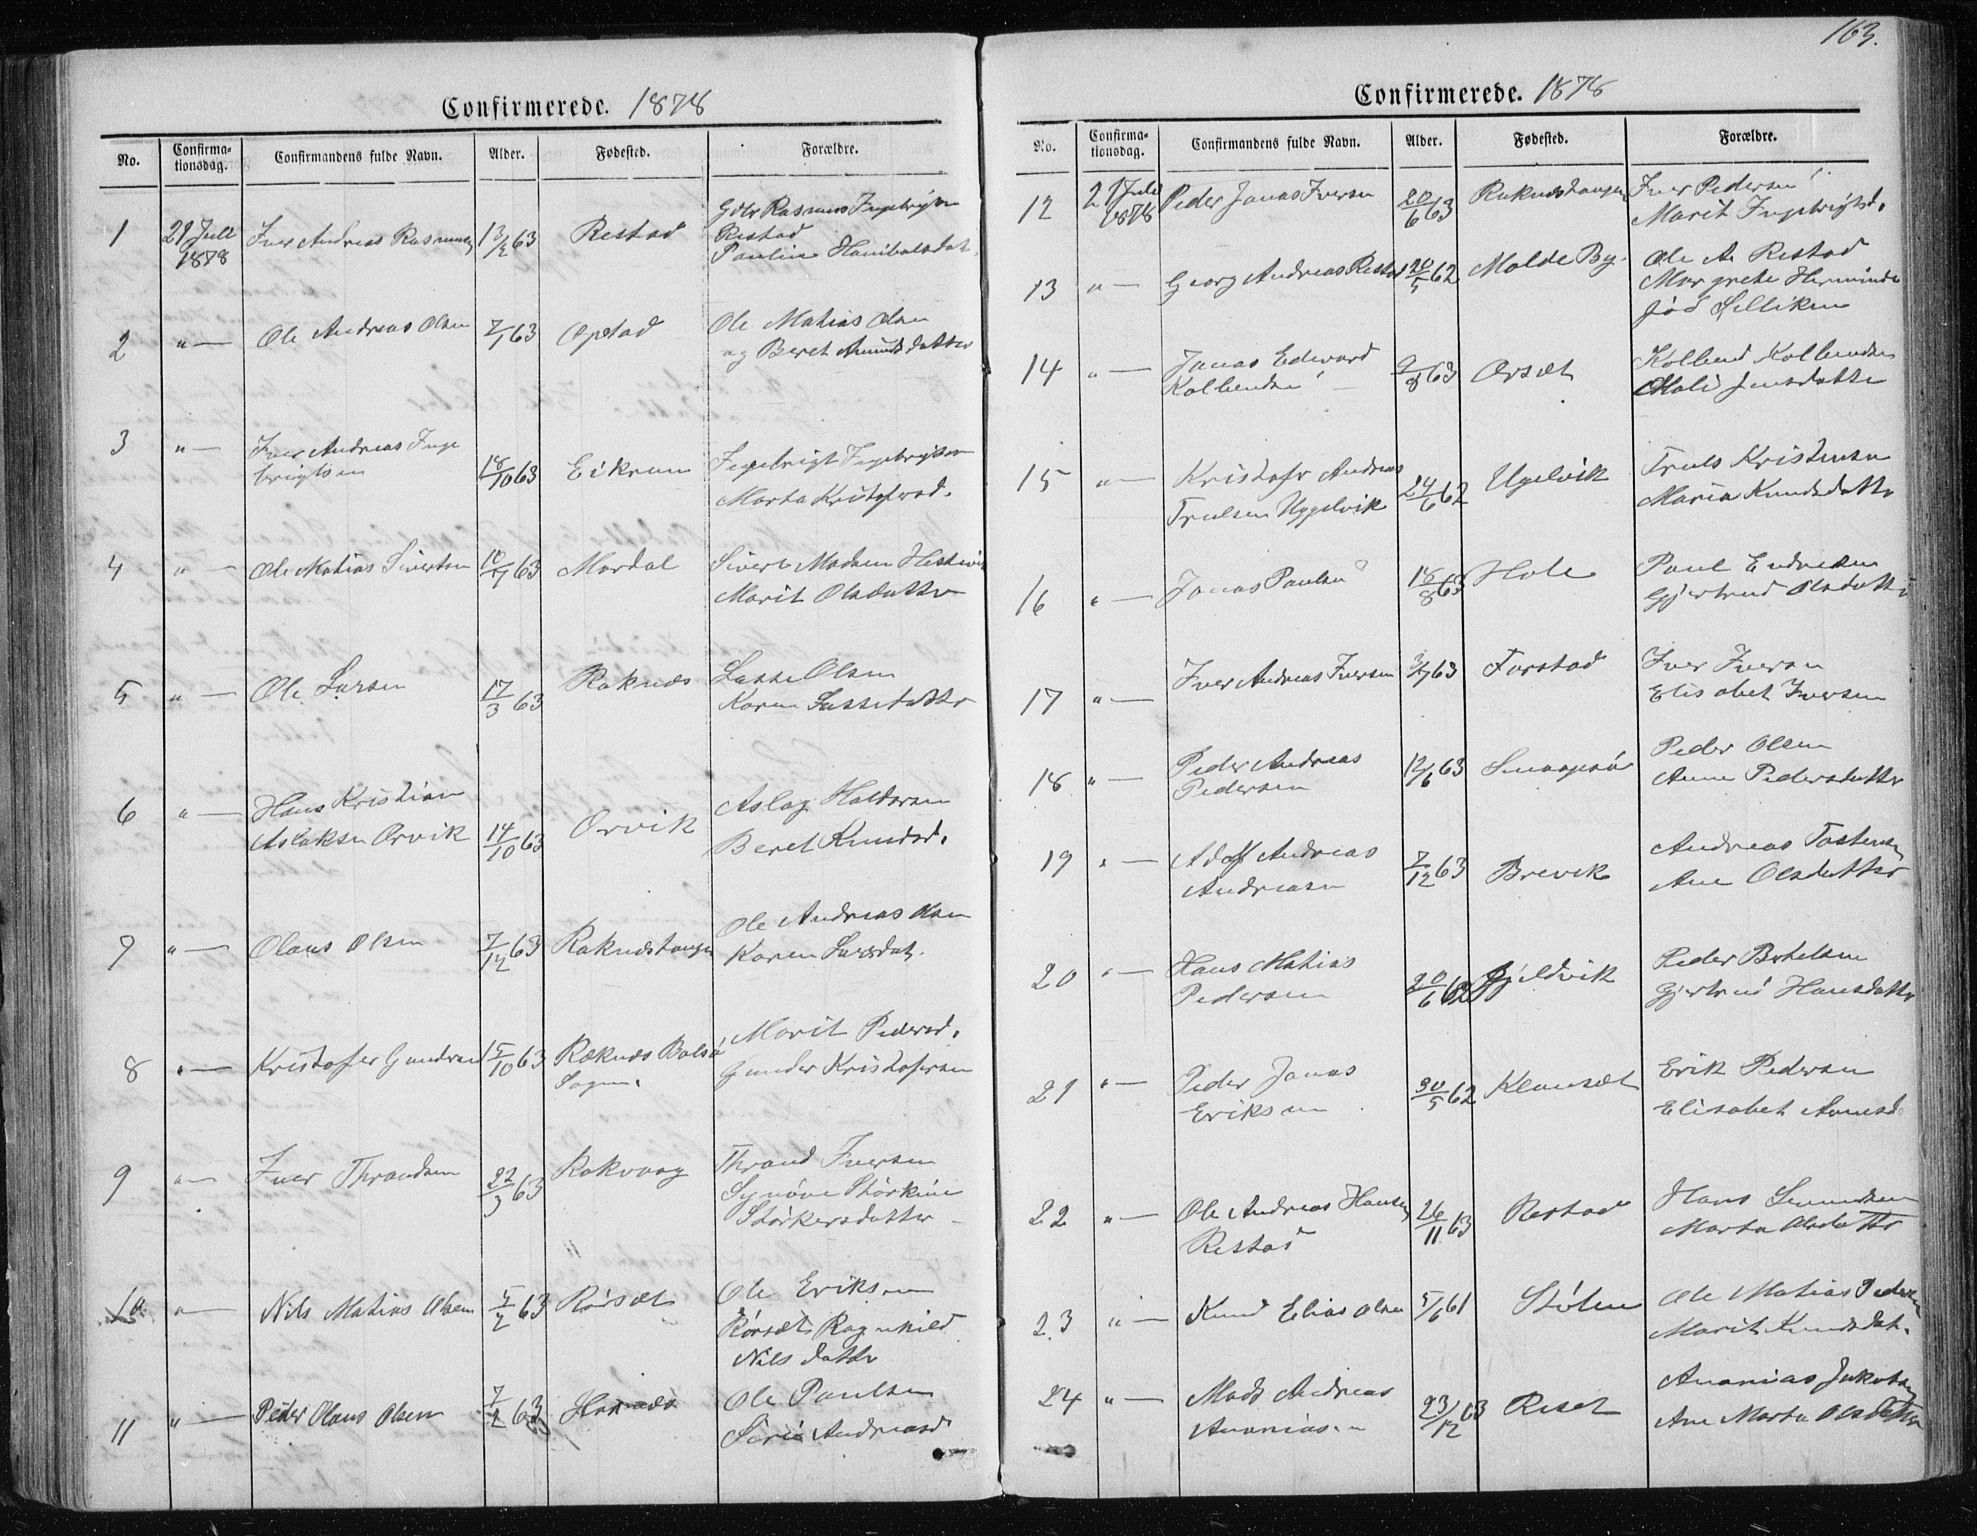 Confirmerede. 1878
No. Confirma-tionsdag. Confirmandens fulde Navn. Alder. Fødested. Forældre.
1 21 Juli 1878 Iver Andreas Rasmusen 13/2 63 Restad Gdbr Rasmus Ingebrigtsen
Restad
Pauline Hanibalsdat.
2 " — Ole Andreas Olsen 7/1 63 Opstad Ole Matias Olsen
og Beret Amundsdatter
3 " — Iver Andreas Inge
brigtsen 18/10 63 Eikrem Ingebrigt Ingebrigtsen
Marta Kristofersd.
4 " — Ole Matias Sivertsen 10/7 63 Mordal Sivert Madsen
Marit Olsdatter
5 " — Ole Larsen 17/3 63 Raknæs Lasse Olsen
Karen Lassedatter
6 " — Hans Kristian
Aslaksen Orvik 14/10 63 Orvik Aslag Haldorsen
Beret Knudsd.
7 " — Olaus Olsen 7/12 63 Raknæstangen Ole Andreas Olsen
Karen Larsdat.
8 " — Kristofer Gundersen 15/10 63 Raknæs Bolsø
Sogn. Marit Pedersd.
Gunder Kristofersen
9 " — Iver Thrandsen 22/3 63 Rakvaag Thrand Iversen
Synøve Størkine
Størkersdatter
10 " — Nils Matias Olsen 5/2 63 Rørsæt Ole Eriksen
Rørsæt Ragnhild
Nilsdatter
11 " — Peder Olaus Olsen 7/2 63 Hornæs Ole Paulsen
Siri Andreasd
163.
Confirmerede. 1878
No. Confirma-tionsdag. Confirmandens fulde Navn. Alder. Fødested. Forældre.
12 21 Juli 1878 Peder Jonas Iversen 20/6 63 Raknæstangen Iver Pedersen
Marit Ingebrigtsd.
13 " — Georg Andreas Restad 20/5 62 Molde By. Ole A Restad
Margrete Herminde
14 " — Jonas Edvard
Kolbensen 2/8 63 Orsæt Kolbend Kolbendsen
Mali Jensdatter
15 " — Kristofer Andreas
Trulsen Uggelvik 24/6 62 Ugelvik Truls Kristensen
Maria Knudsdatter
16 " — Jonas Paulsen 18/8 63 Hole Paul Endresen
Gjertrud Olsdatter
17 " — Iver Andreas Iversen 3/7 63 Farstad Iver Iversen
Elisabet Iversen
18 " — Peder Andreas
Pedersen 12/6 63 Peder Olsen
Anne Pedersdatter
19 " — Adolf Andreas
Andreasen 7/12 63 Brevik Andreas Tostensen
Ane Olsdatter
20 " — Hans Matias
Pedersen 20/6 62 Gjeldvik Peder Botelsen
Gjertrud Hansdatter
21 " — Peder Jonas
Eriksen 30/5 62 Klausæt Erik Pedersen
Elisabet
22 " — Ole Andreas Hansen
Restad 26/11 63 Restad Hans
Marta Olsdatter
23 " — Knud Elias Olsen 5/6 61 Stølen Ole Matias Pedersen
Marit Knudsdat.
24 " — Mads Andreas
Ananiasen 23/12 63 Reset Ananias Jakobsen
Ane Marta Olsdatter